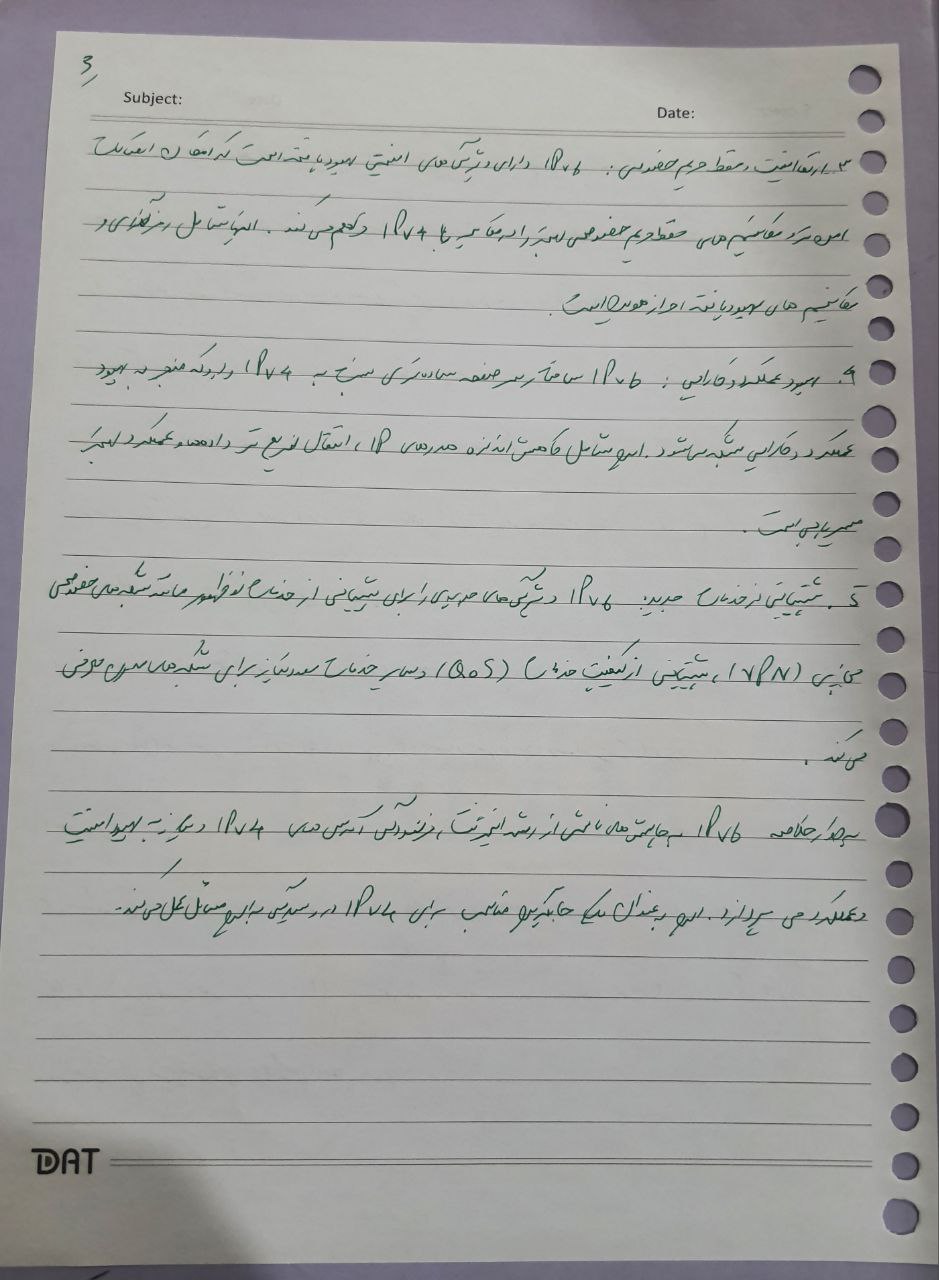 3
Subject:
Date:
3. ارتقا امنیت و حفظ حریم خصوصی: IPv6 دارای ویژگی‌های امنیتی بهبود یافته است که امکان
و مکانیسم‌های حفظ حریم خصوصی بهتر را در مقایسه با IPv4 فراهم می‌کند. اینها شامل رمزگذاری و
مکانیسم های بهبود یافته احراز هویت است.
4. بهبود عملکرد و کارایی: IPv6 ساختار سرصفحه ساده‌تری نسبت به IPv4 دارد که منجر به بهبود
عملکرد و کارایی شبکه می‌شود. این شامل کاهش اندازه هدرهای IP، انتقال سریع تر داده‌ها و عملکرد بهتر
مسیریابی است.
5. پشتیبانی از خدمات جدید: IPv6 ویژگی‌های جدیدی را برای پشتیبانی از خدمات نوظهور مانند شبکه‌های خصوصی
مجازی (VPN)، پشتیبانی از کیفیت خدمات (QoS) و سایر خدمات مورد نیاز برای شبکه‌های مدرن معرفی
می‌کند.
به طور خلاصه IPv6 به چالش‌های ناشی از رشد اینترنت، فرسودگی آدرس های IPv4 و نیاز به بهبود امنیت
و عملکرد می پردازد. این به عنوان یک جایگزین مناسب برای IPv4 در رسیدگی به این مسائل عمل می‌کند.
DAT